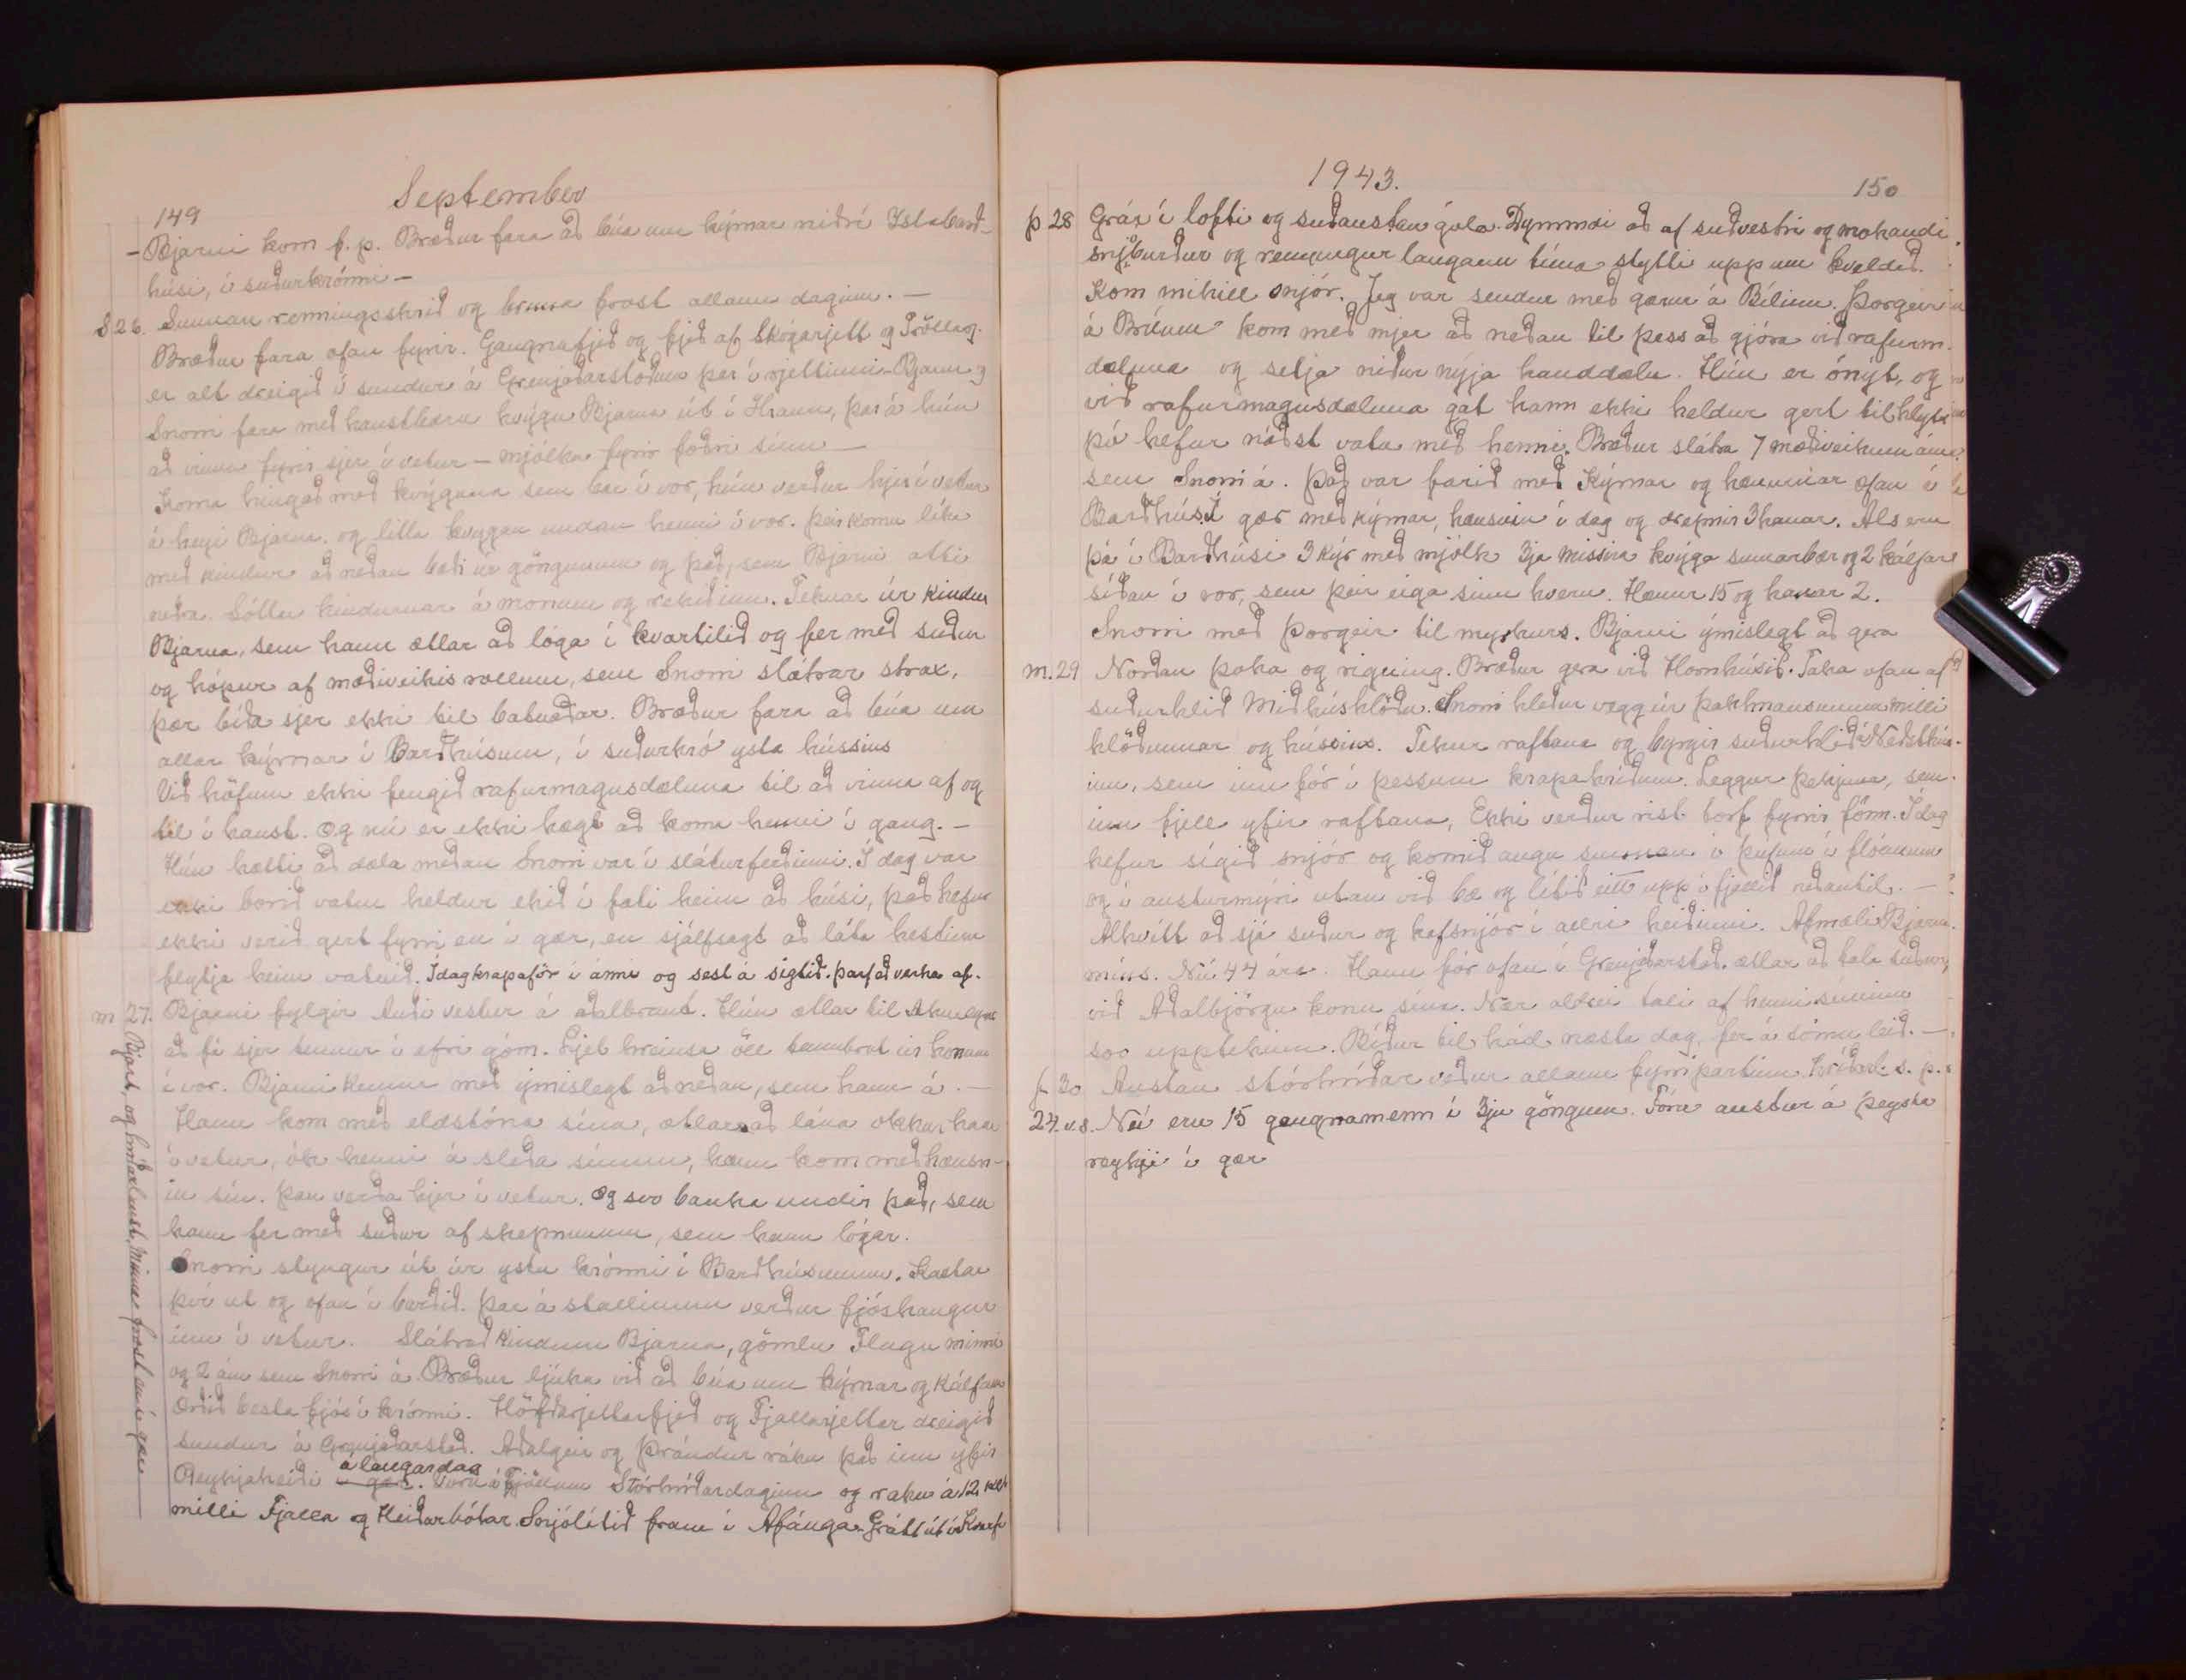 149
September
- Bjarni kom f.p. Bræður fara að búa um kýrnar niðrí Ystabarð-
húsi, í suðurkrónni -
S 26. Sunnan renningsskrið og bruna frost allann daginn. -
Bræður fara ofan fyrir. Gangnafjéð og fjéð af Skógarjett og Tröllag.
er alt dreigið í sundur á Grenjaðarstöðum þar í rjettinni - Bjarni og
Snorri fara með haustbæru kvígu Bjarna út í Hraun, þar á hún
að vinna fyrir sjer í vetur - mjólka fyrir foðri sínu -
Koma hingað með kvýguna sem bar í vor, hún verður hjer í vetur
á heyi Bjarna. og litla kvýgan undan henni í vor. Þeir komu líka
með kindur að neðan bæði úr göngunum og það, sem Bjarni átti
neðra. Sóttu kindurnar á monum og rekið inn. Teknar úr kindur
Bjarna, sem hann ætlar að lóga í kvartilið og fer með suður
og hópur af mæðiveikis rollum, sem Snorri slátrar strax,
þær bíða sjer ekki til batnaðar. Bræður fara að búa um
allar kýrnar í Barðhúsum, í suðurkró ysta hússins
Við höfum ekki fengið rafurmagnsdæluna til að vinna af og
til í haust. Og nú er ekki hægt að koma henni í gang. -
Hún hætti að dæla meðan Snorri var í sláturferðinni. Í dag var
ekki borið vatn heldur ekið í fati heim að húsi, það hefur
ekki verið gert fyrri en í gær, en sjálfsagt að láta hestinn
flytja heim vatnið. Ídag krapaför í ánni og sest á sigtið. þarf að verka af.
m 27. Bjarni fylgir Auði vestur á aðalbraut. Hún ætlar til Akureyrar
að fá sjer tennur í efri góm. Ljet hreinsa öll tannbrot úr honum
í vor. Bjarni kemur með ýmislegt að neðan, sem hann á. -
Hann kom með eldstóna sína, ætlar að lána okkur hana
í vetur, ók henni á sleða sínum, hann kom með hænsn-
in sín. Þau verða hjer í vetur. Og svo tanka undir það, sem
hann fer með suður af skepnunum, sem hann lógar.
Snorri styngur út úr ystu krónni í Barðhúsunum. Kastar
því út og ofan í barðið. Þar á stallinum verður fjóshaugur
inn í vetur. Slátrað kindum Bjarna, gömlu Flugu minni
og 2 ám sem Snorri á. Bræður ljúka við að búa um kýrnar og kálfana
Orðið besta fjós í krónni. Höfðarjettarfjeð og Fjallarjettar dreigið
sundur á Grenjaðarstað. Aðalgeir og Þrándur ráku það inn yfir
Reykjaheiði á laugardag í gær. Voru á Fjöllum Stórhríðardaginn og raku á 12 kl.
milli Fjalla og Heiðarbótar. Snjólítið fram í Afánga. Grátt út í
Bjart, og hríðarlaust, minna frost en í gær
1943.
150
þ. 28 Gráx í lofti og suðaustan gola. Dymmdi að af suðvestri og mokandi
snjóburður og renningur langann tíma stytti upp um kveldið.
Kom mikill snjór. Jeg var sendur með gærur á Bílinn. Þorgeir
á Brúum kom með mjer að neðan til þess að gjóra við rafurm.
dæluna og setja niður nýja handdælu. Hún er ónýt, og
við rafurmagnsdæluna gat hann ekki heldur gert til hlytar
þó hefur náðst vatn með henni. Bræður slátra 7 mæðiveikum ám
sem Snorri á. Það var farið með Kýrnar og hænurnar ofan í
Barðhús. Í gær með kýrnar, hænsnin í dag og drepnir 3 hanar. Als eru
þá í Barðhúsi 3 kýr með mjólk 3ja missira kvýga sumarbær og 2 kálfar
síðan í vor, sem þeir eiga sinn hvern. Hænur 15 og hanar 2.
Snorri með Þorgeir til myrkurs. Bjarni ýmislegt að gera
m. 29 Norðan þoka og rigning. Bræður gera við Hornhúsið. Taka ofan af
suðurhlið Miðhúshlöðu. Snorri hleður vegg úr þakhnausunum milli
hlöðunnar og hússins. Tekur raftana og byrgir suðurhlið Neðsthús-
inu, sem inn fór í þessum krapahríðum. Leggur þekjuna, sem
inn fjell yfir raftana, Ekki verður rist torf fyrir fönn. Ídag
hefur sígið snjór og komið augu sunnan í þúfum í flóanum
og í austurmýri utan við bæ og lítið eitt upp í fjallið neðantil. -
Alhvítt að sjá suður og kafsnjór í allri heiðinni. Afmæli Bjarna
míns. Nú 44 ára. Hann fór ofan í Grenjaðarstað. ætlar að tala suður,
við Aðalbjörgu konu sína. Nær aldrei tali af henni síminn
svo upptekinn. Bíður til hád næsta dag, fer á sömu leið. -
f 30 Austan stórhríðar veður allann fyrripartinn Hríðarl. s. p.
24. v. s. Nú eru 15 gangnamenn í 3ju göngum. Fóru austur á þeysta
reyki í gær